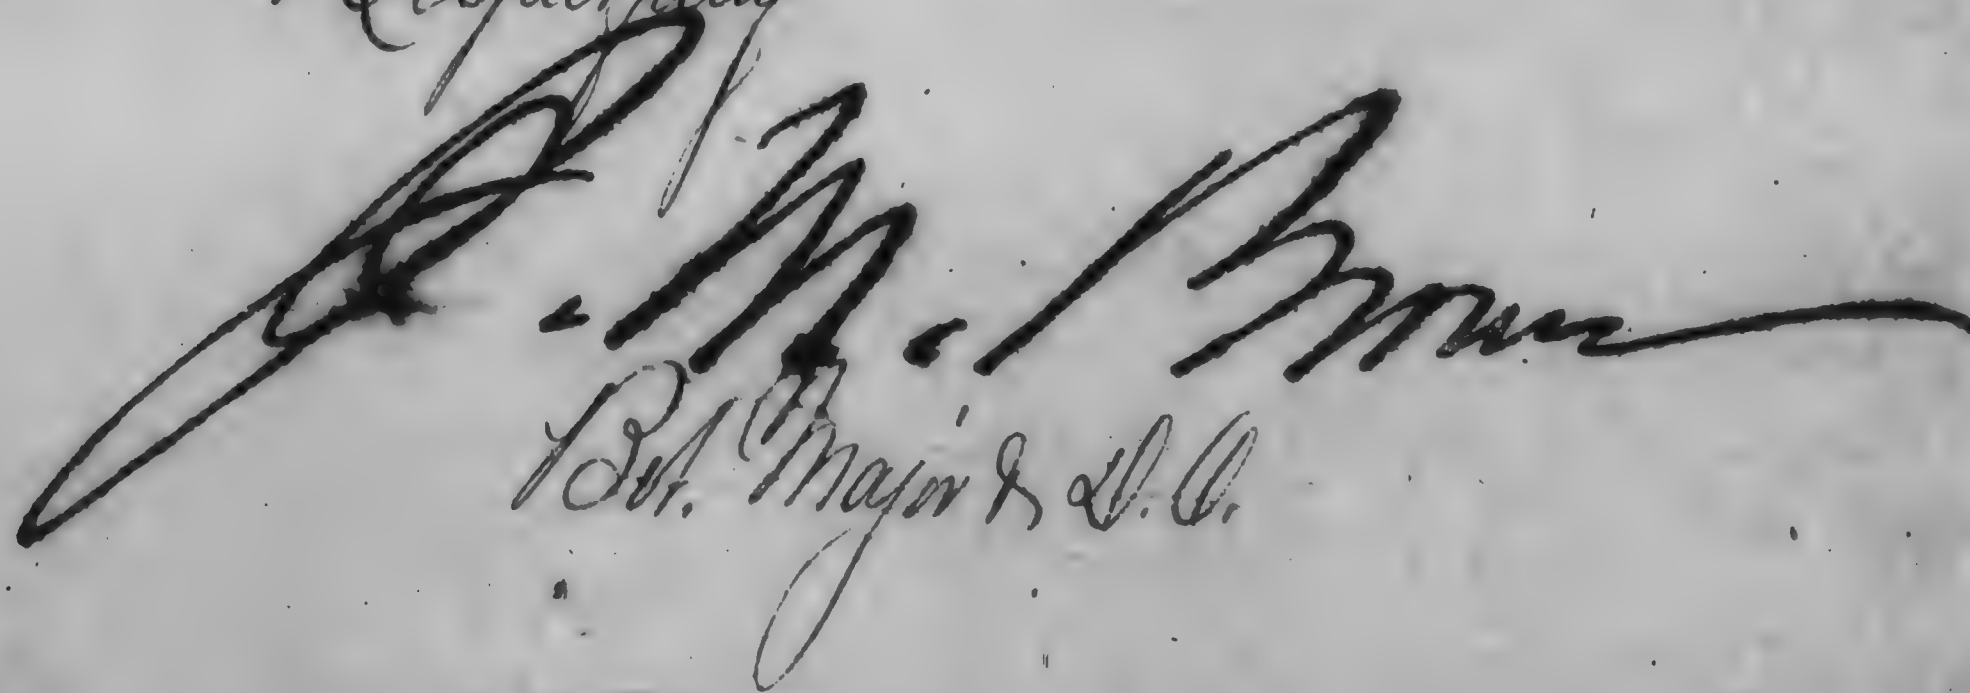 Respectfully
J. M. Brown
Bvt. Major & D.O.